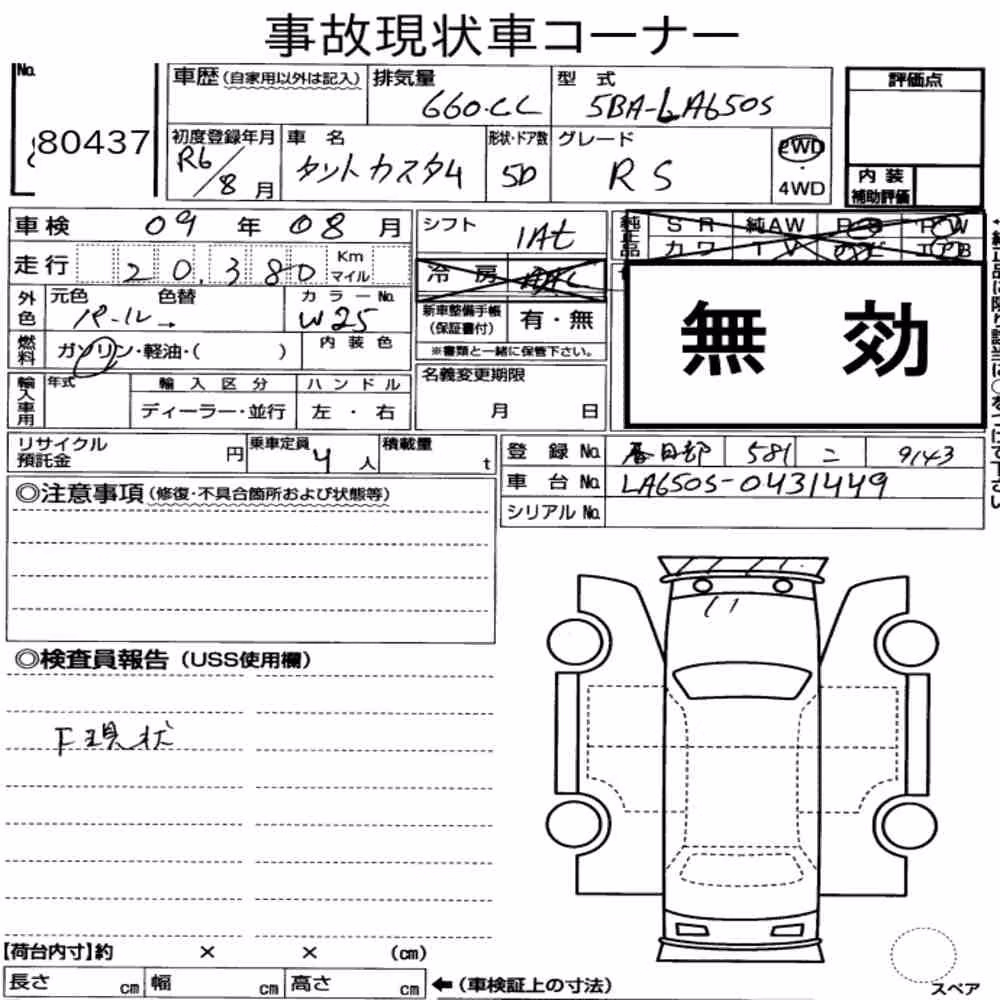 事故現状車コーナー
No.
80437
車歴(自家用以外は記入)
排気量
660.CC
型 式
5BA-LA650S
評価点
初度登録年月
R6/8月
車 名
タントカスタム
形状・ドア数
5D
グレード
RS
2WD
・
4WD
内 装
補助評価
車検 09 年 08 月
シフト
1At
純正品
SR 純AW PS PW
カワ TV ナビ エアB
走行 20,380 Km マイル
冷 房 AAC
外色
元色 色替
パール→
カラーNo.
W25
新車整備手帳
(保証書付)
有・無
※書類と一緒に保管下さい。
無 効
燃料
ガソリン・軽油・( )
内装色
輸入車用
年式
輸入区分
ディーラー・並行
ハンドル
左 ・ 右
名義変更期限
月 日
リサイクル
預託金
円
乗車定員
4人
積載量
t
登 録 No. 春日部 581 こ 9143
車 台 No. LA650S-0431449
シリアル No.
◎注意事項(修復・不具合箇所および状態等)
◎検査員報告(USS使用欄)
下現状
【荷台内寸】約 × × (cm)
長さ cm 幅 cm 高さ cm ←(車検証上の寸法)
スペア